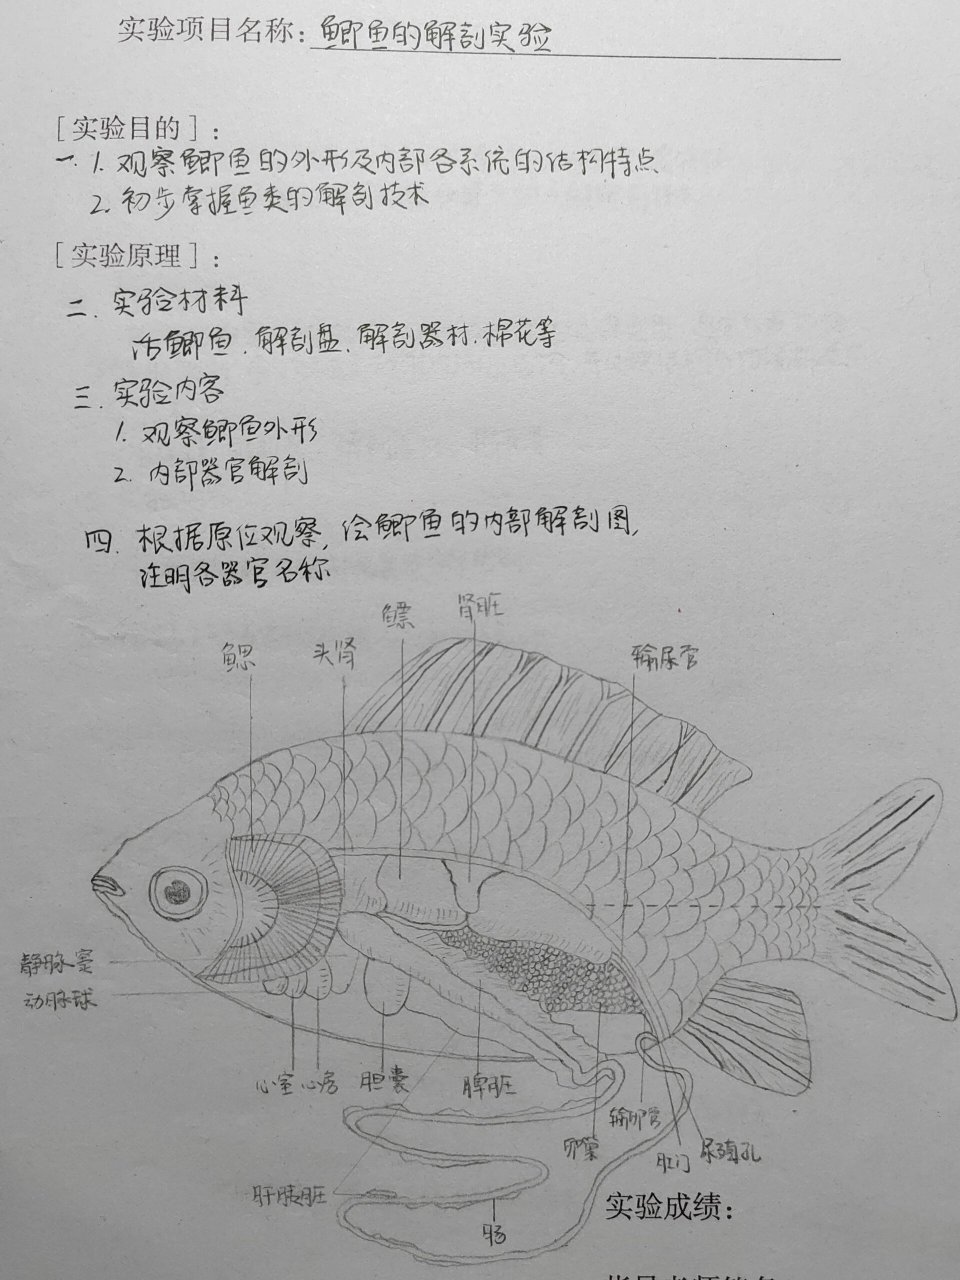 实验项目名称：鲫鱼的解剖实验
[实验目的]：
一. 1. 观察鲫鱼的外形及内部各系统的结构特点
2. 初步掌握鱼类的解剖技术
[实验原理]：
二. 实验材料
活鲫鱼、解剖盘、解剖器材、棉花等
三. 实验内容
1. 观察鲫鱼外形
2. 内部器官解剖
四. 根据原位观察, 绘鲫鱼的内部解剖图,
注明各器官名称
鳃 头肾 鳔 肾脏 输尿管
静脉窦
动脉球
心室 心房 胆囊 脾脏 输卵管
卵巢 肛门 尿殖孔
肝胰脏
肠
实验成绩：